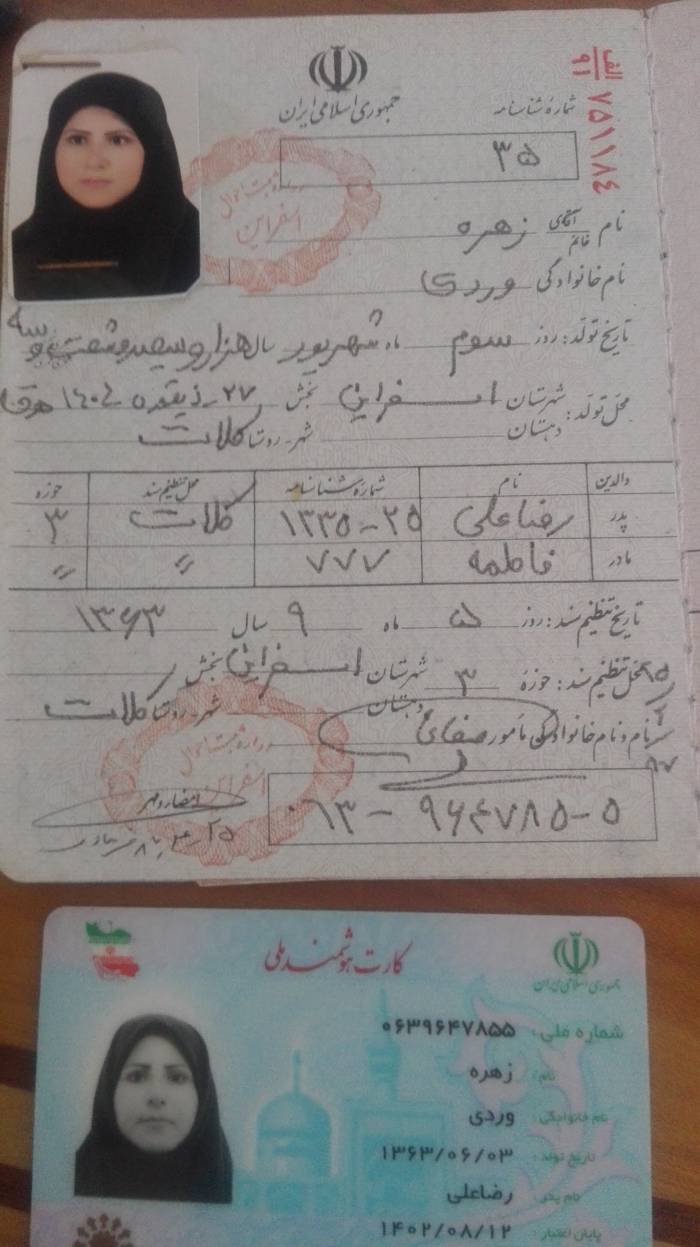 جمهوری اسلامی ایران
الف
۹۱
۷۵۱۱۸۴
شماره شناسنامه
۳۵
نام آقای خانم زهره
نام خانوادگی وردی
تاریخ تولد: روز سوم ماه شهریور سال هزار و سیصد و شصت و سه
محل تولد: شهرستان اسفراین بخش ۲۷ ذیقعده ۱۴۰۴
دهستان شهر-روستا کلات
والدین نام شماره شناسنامه محل تنظیم سند حوزه
پدر رضاعلی ۲۵-۱۳۳۵ کلات ۳
مادر فاطمه ۷۷۷ " "
تاریخ تنظیم سند: روز ۵ ماه ۹ سال ۱۳۶۳
محل تنظیم سند: حوزه ۳ شهرستان اسفراین بخش
دهستان شهر-روستا کلات
نام و نام خانوادگی مأمور صفائی
امضاء و مهر
۰۶۳-۹۶۴۷۸۵-۵
اسفراین
اسفراین
کارت هوشمند ملی
جمهوری اسلامی ایران
شماره ملی: ۰۶۳۹۶۴۷۸۵۵
نام: زهره
نام خانوادگی: وردی
تاریخ تولد: ۱۳۶۳/۰۶/۰۳
نام پدر: رضاعلی
پایان اعتبار: ۱۴۰۲/۰۸/۱۲